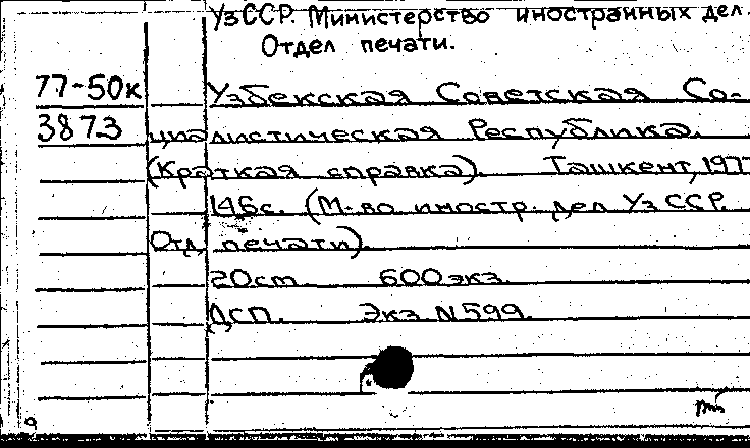 УзССР. Министерство иностранных дел.
Отдел печати.
77-50к Узбекская Советская Со-
3873 циалистическая Республика.
(Краткая справка). Ташкент, 197
146с. (М-во иностр. дел УзССР.
Отд. печати).
20cm. 600 экз.
ДСП. Экз N 599.